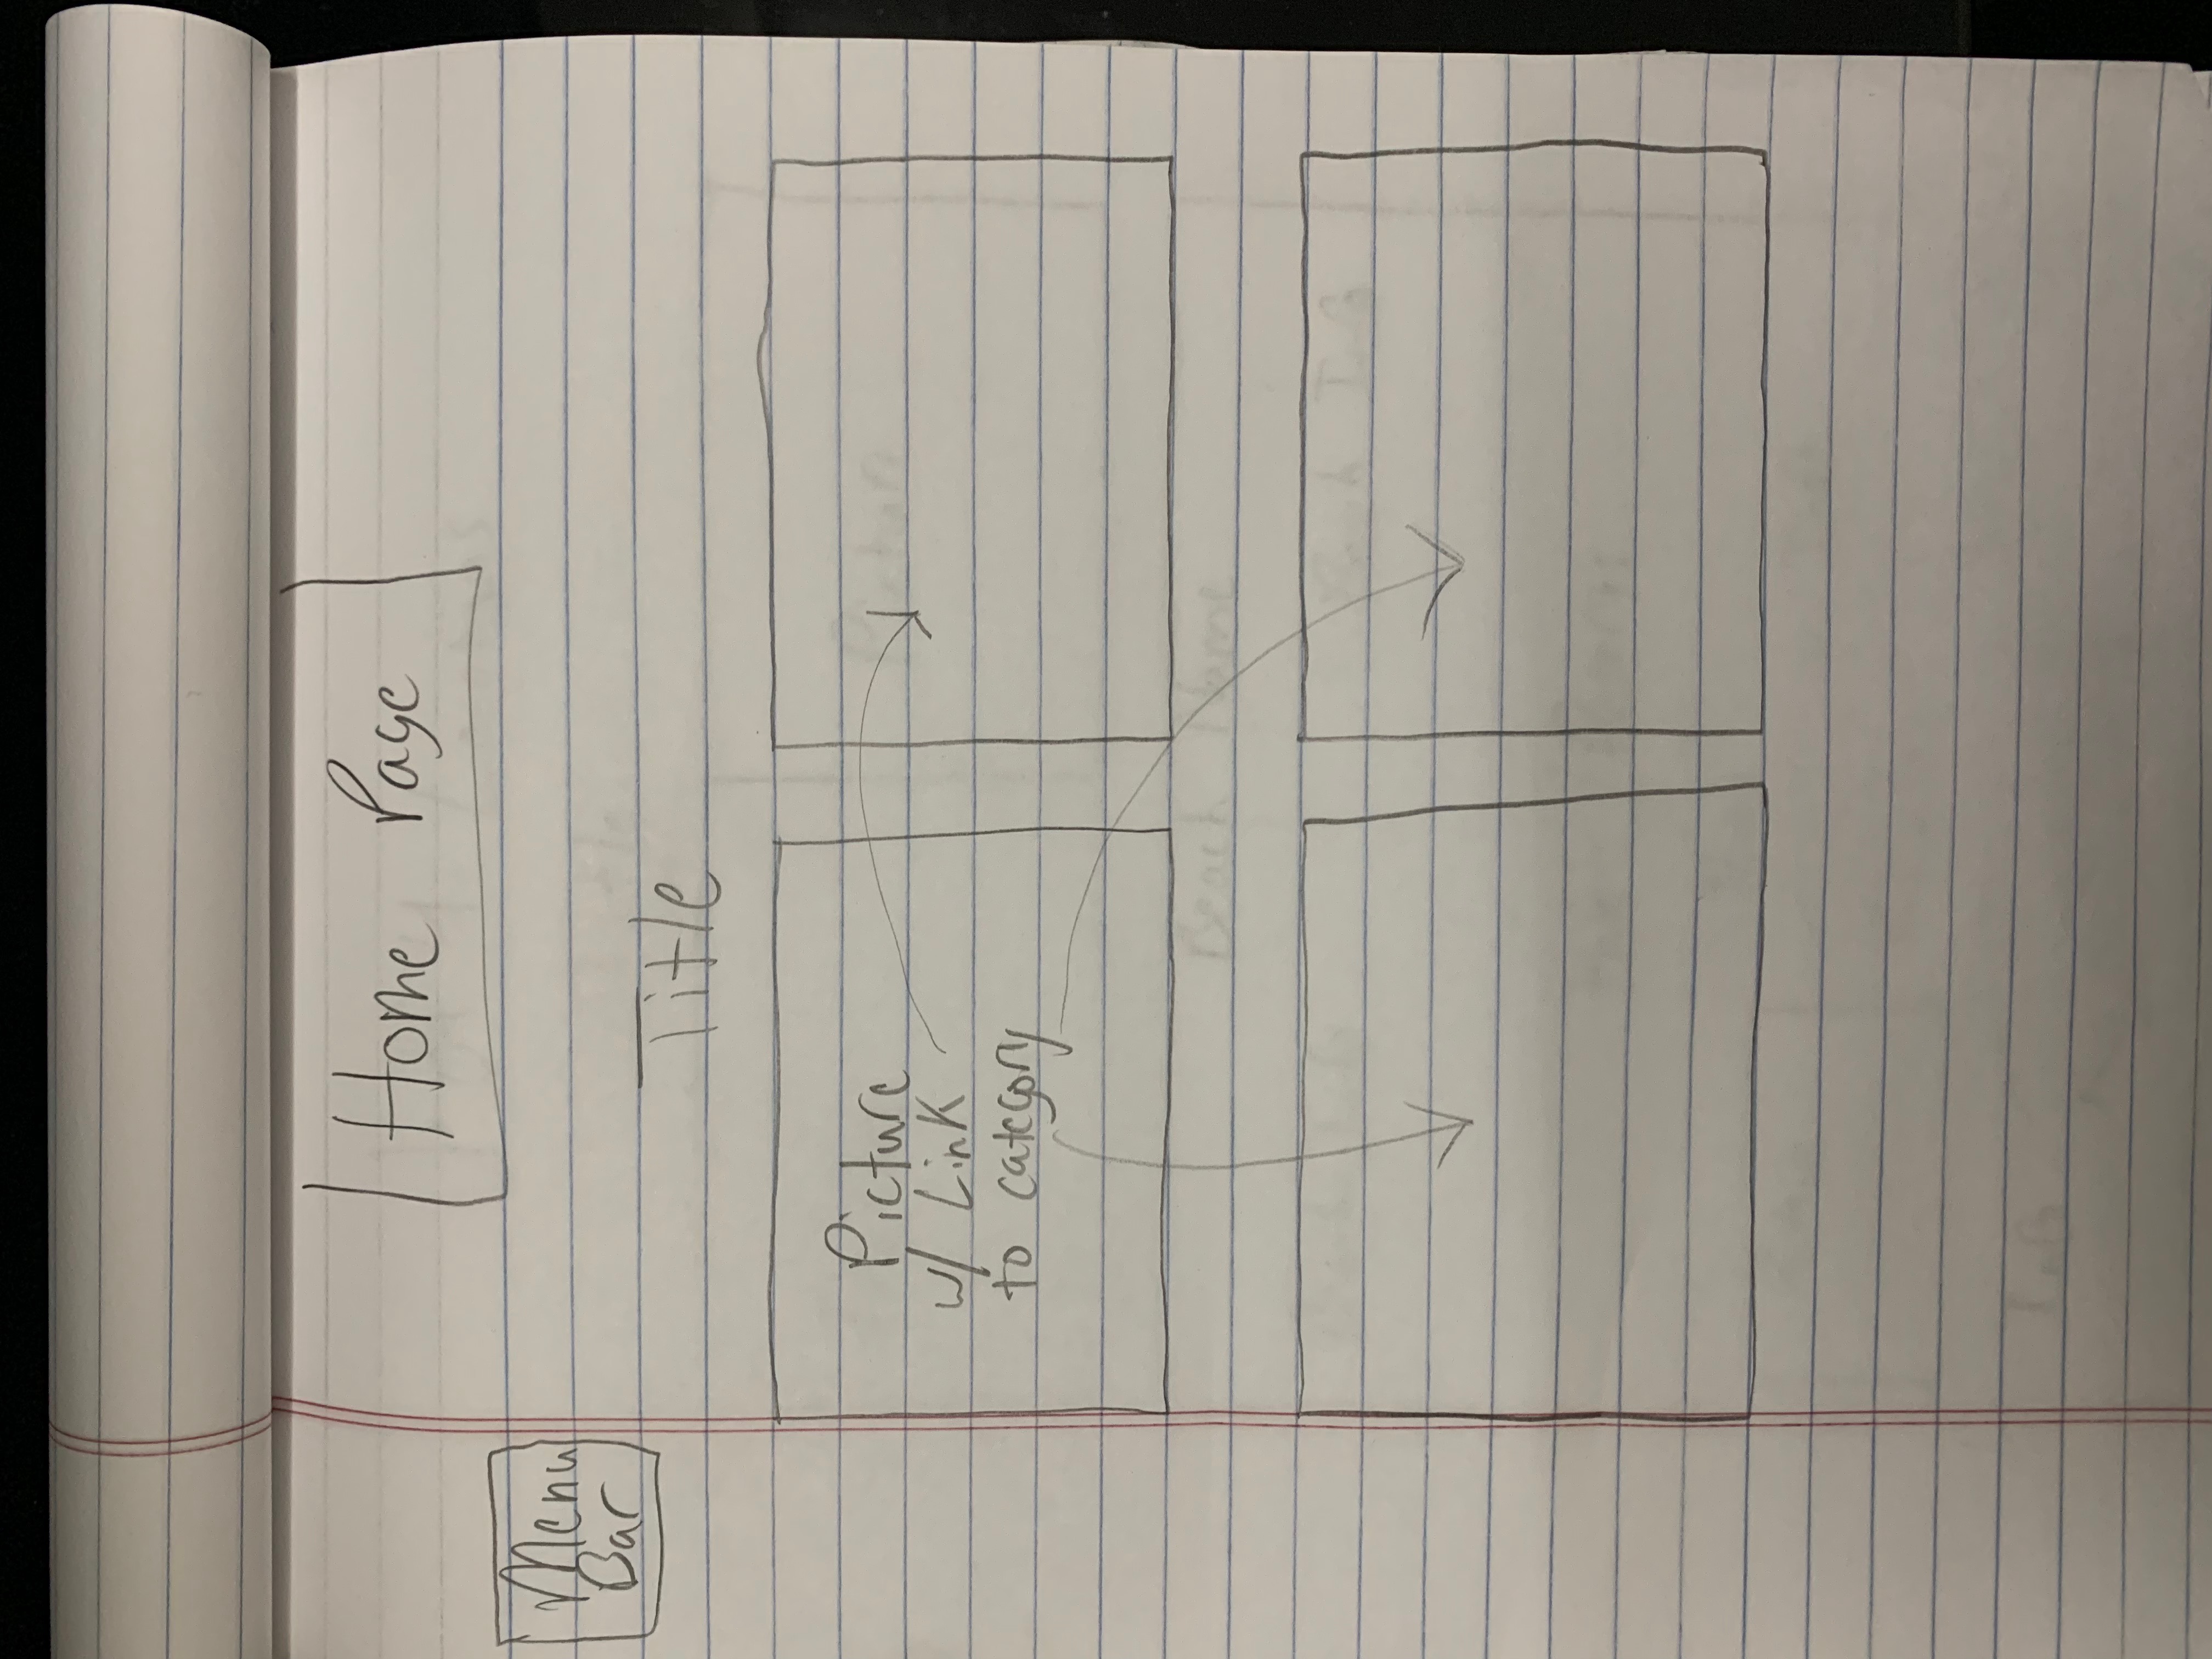 Home Page
Menu
Bar
Title
Picture
w/ Link
to category